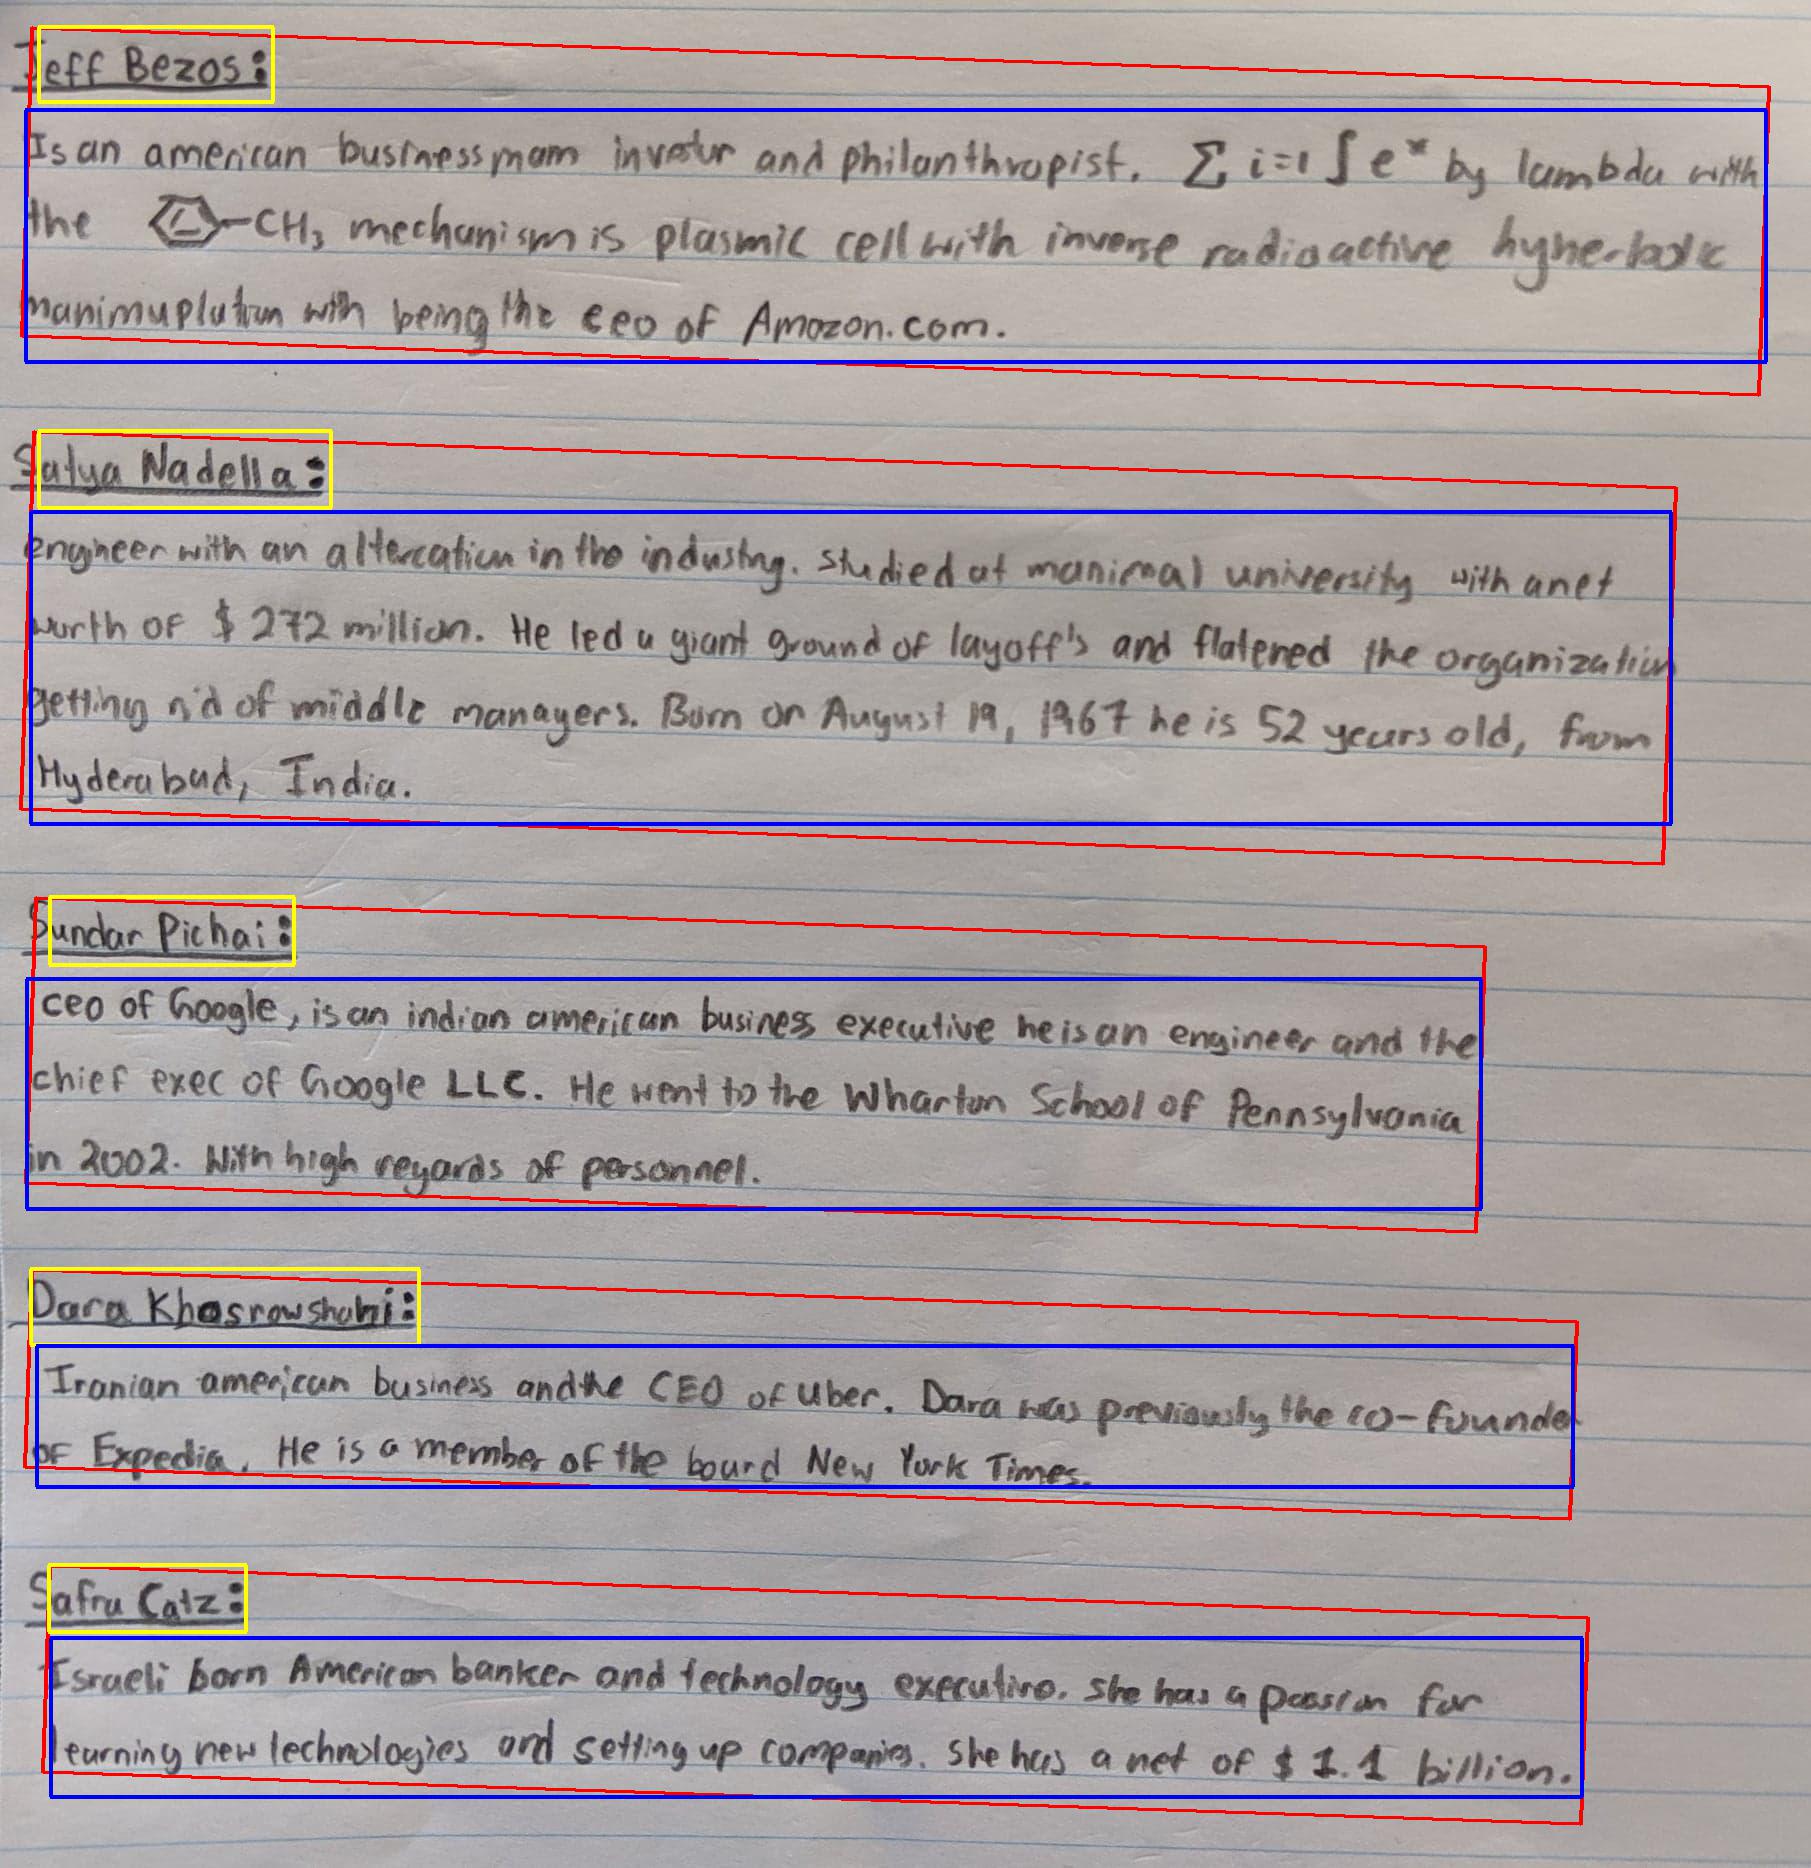 Jeff Bezos:
Is an american businessmam investur and philanthropist. ∑ i=1 ∫ e^x by lambda with
the -CH₃ mechanism is plasmic cell with inverse radioactive hyperbolic
manimuplution with being the ceo of Amozon.com.
Satya Nadella:
engineer with an altercation in the industry. studied at manimal university with a net
wurth of $ 272 million. He led a giant ground of layoff's and flatened the organization
getting rid of middle managers. Burn on August 19, 1967 he is 52 years old, from
Hyderabud, India.
Sundar Pichai:
ceo of Google, is an indian american business executive he is an engineer and the
chief exec of Google LLC. He went to the Wharton School of Pennsylvania
in 2002. With high regards of personnel.
Dara Khosrowshahi:
Iranian american business and the CEO of uber. Dara was previously the co-founder
of Expedia. He is a member of the bourd New York Times.
Safra Catz:
Israeli born American banker and technology executive. she has a passion for
learning new technologies and setting up companies. she has a net of $ 1.1 billion.